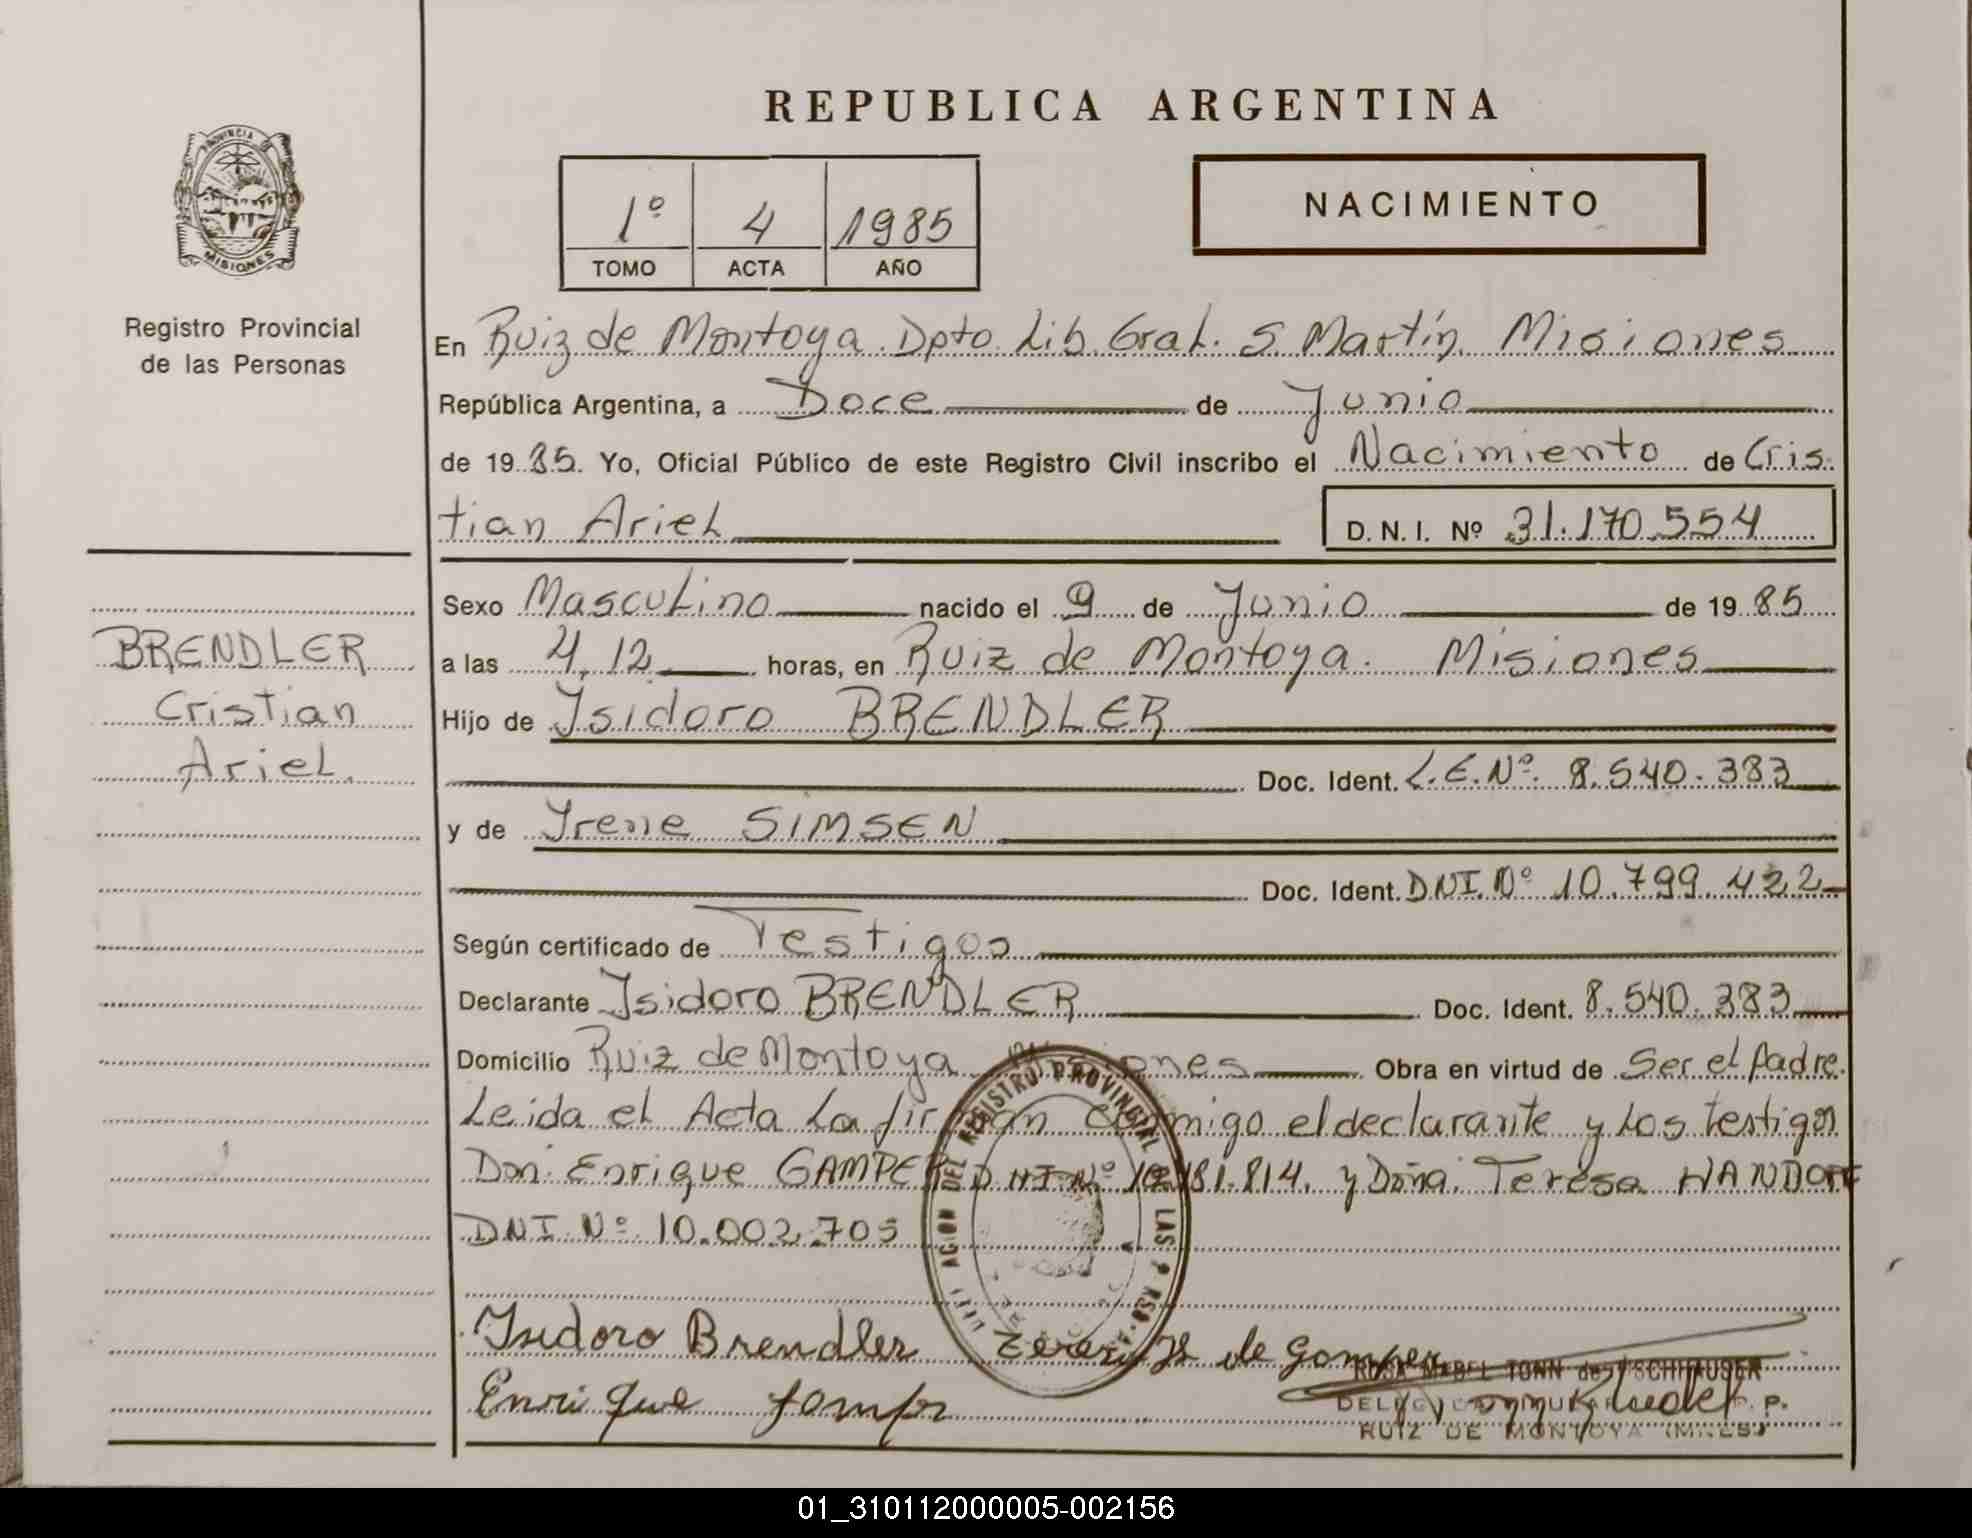 REPUBLICA ARGENTINA
PROVINCIA DE
MISIONES
Registro Provincial
de las Personas
1º 4 1985
TOMO ACTA AÑO
NACIMIENTO
En Ruiz de Montoya. Dpto. Lib. Gral. S. Martín. Misiones
República Argentina, a Doce de Junio
de 1985. Yo, Oficial Público de este Registro Civil inscribo el Nacimiento de Cris
tian Ariel
D. N. I. Nº 31.170.554
Sexo Masculino nacido el 9 de Junio de 1985
a las 4,12 horas, en Ruiz de Montoya. Misiones
Hijo de Isidoro BRENDLER
Doc. Ident. L.E.Nº. 8.540.383
y de Irene SIMSEN
Doc. Ident. DNI. Nº 10.799.422
Según certificado de Testigos
Declarante Isidoro BRENDLER Doc. Ident. 8.540.383
Domicilio Ruiz de Montoya Misiones Obra en virtud de Ser el padre.
Leida el Acta la firman conmigo el declarante y los testigos
Don: Enrique GAMPER DNI Nº 10.181.814. y Doña: Teresa
DNI Nº 10.002.705
BRENDLER
Cristian
Ariel.
DEL REGISTRO PROVINCIAL DE LAS
Isidoro Brendler de Gamper
Enrique
ROSA MABEL TONN de
RUIZ DE MONTOYA (MNES)
01_310112000005-002156